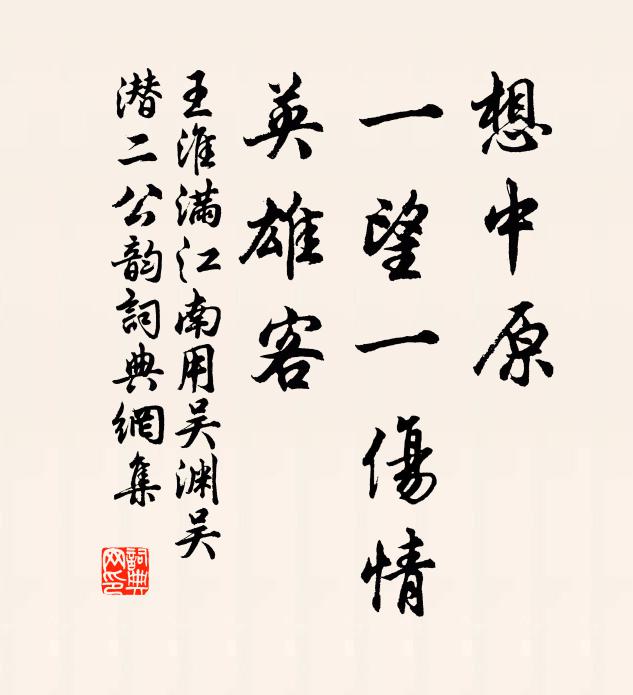 想中原
一望一傷情
英雄客
王淮滿江南用吴渊吴
潜二公韵詞典網集
詞典
网印